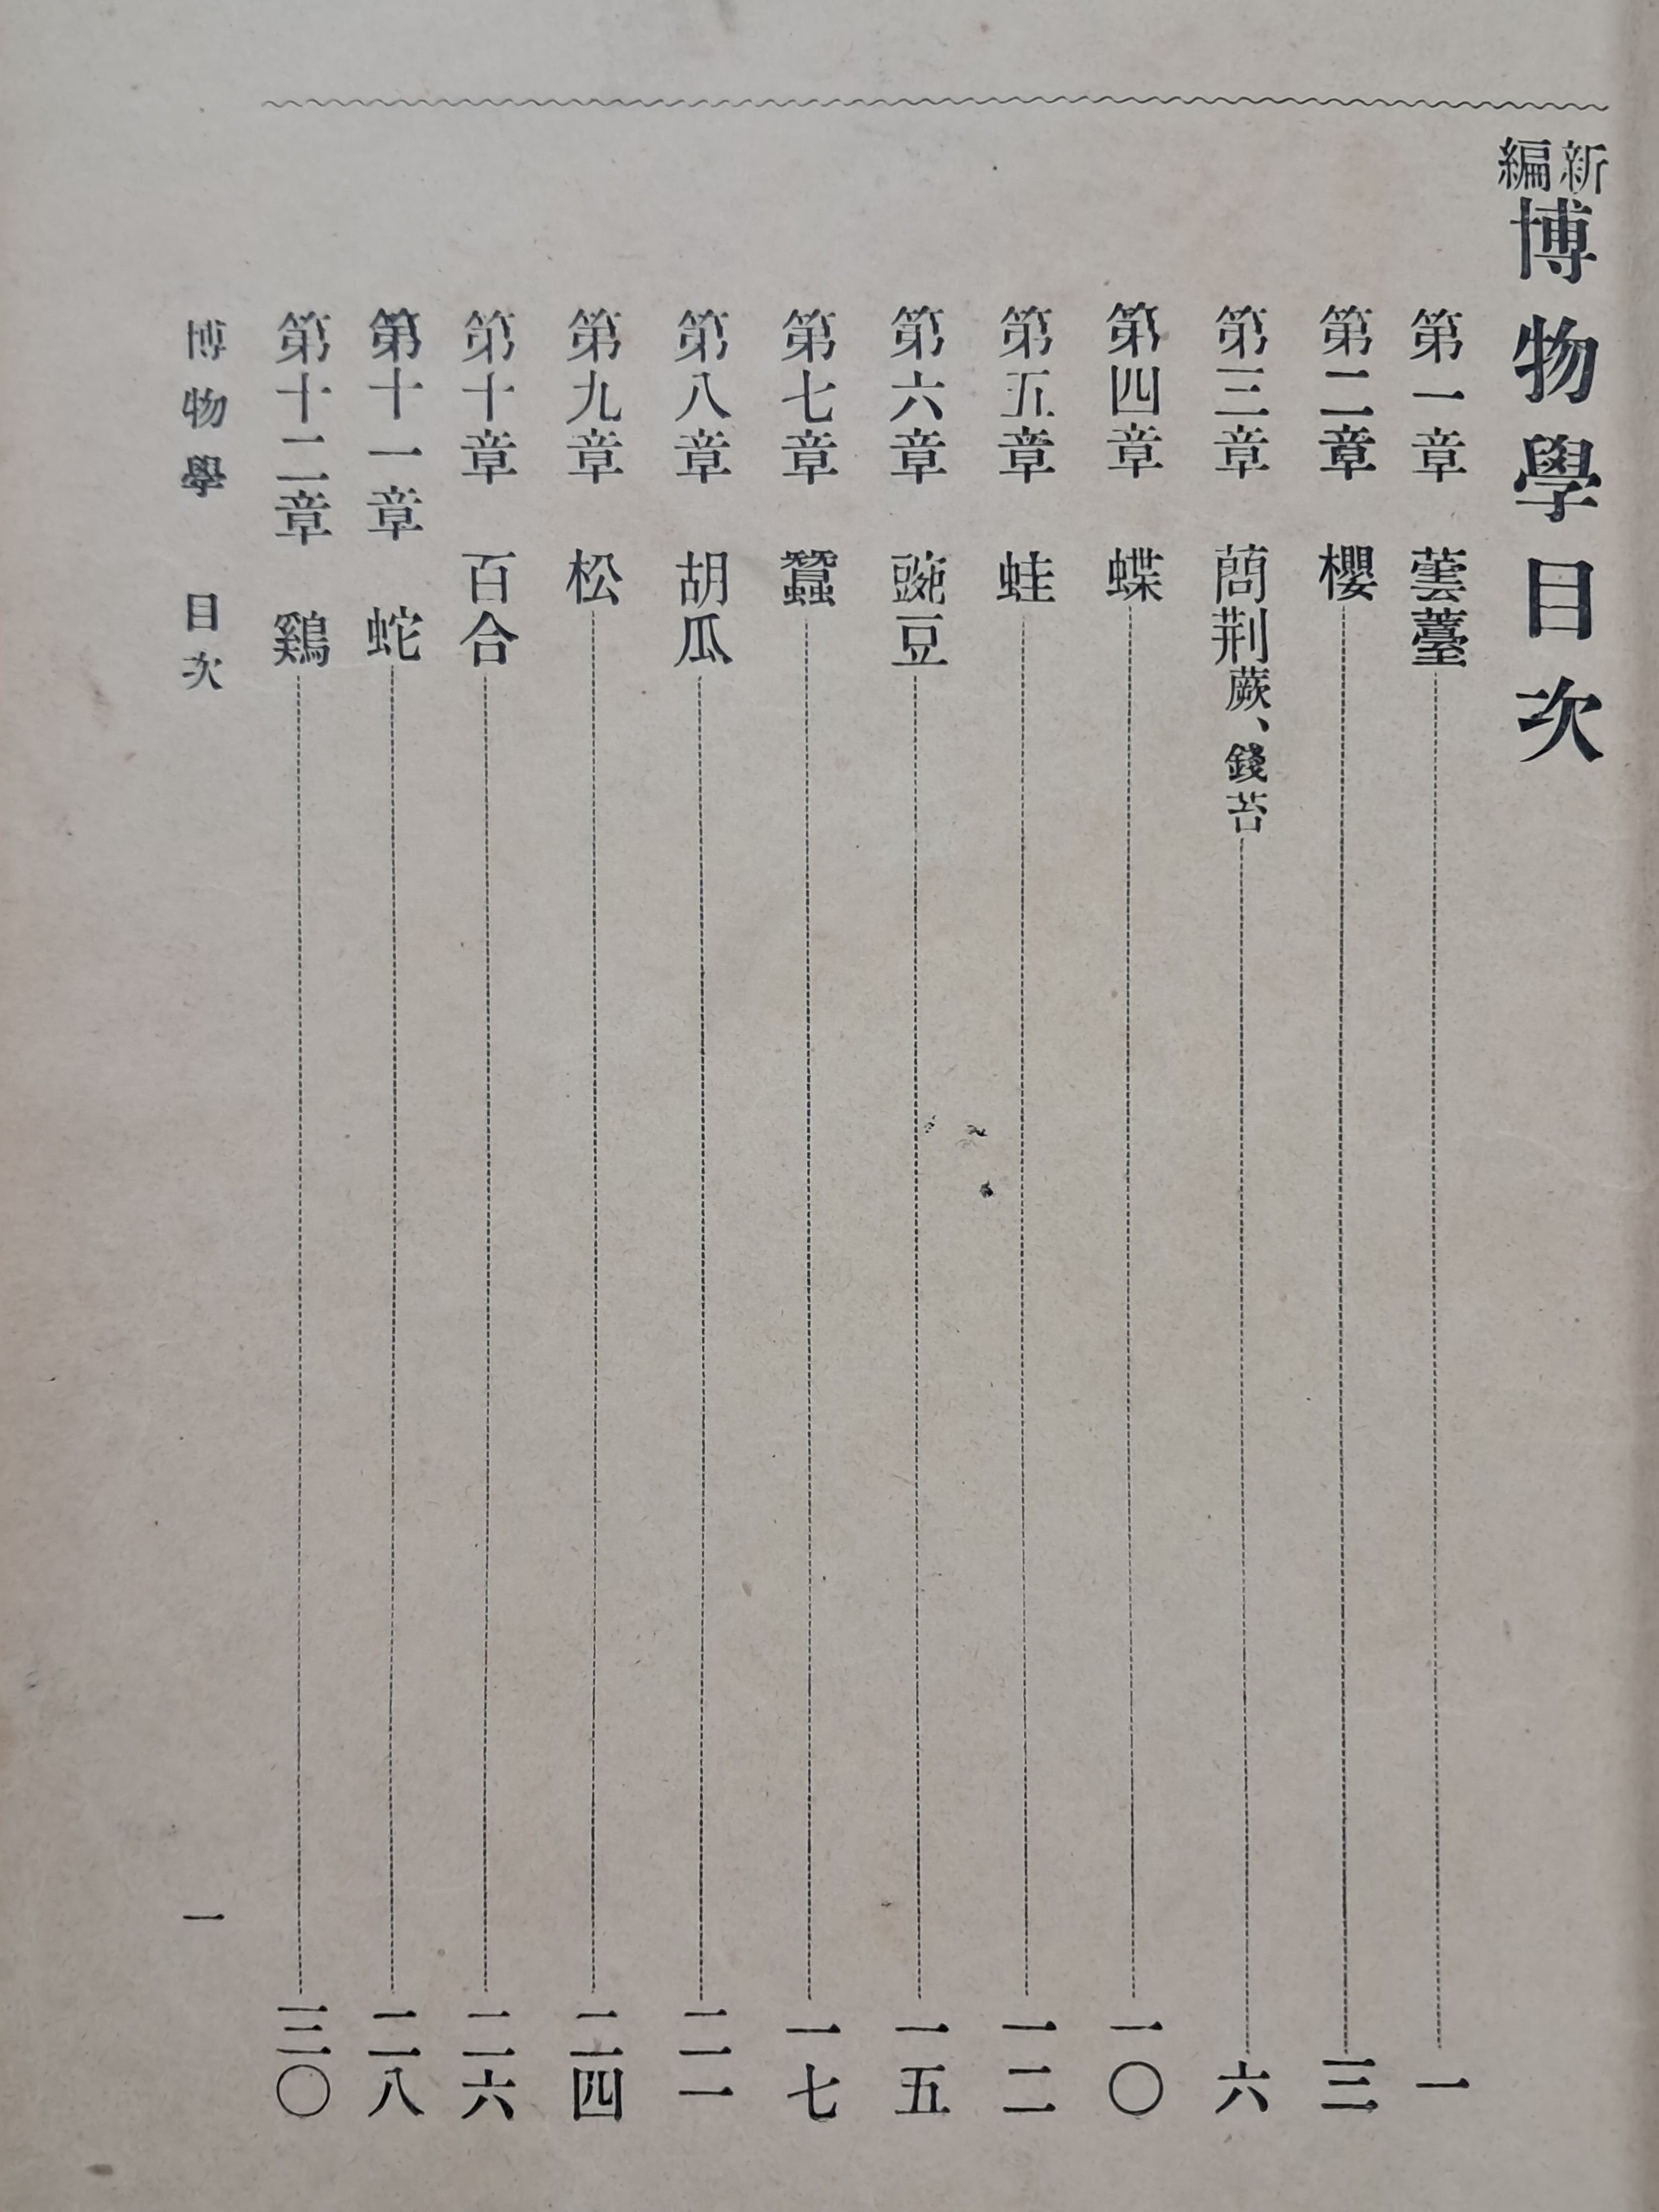 新編博物學目次
第一章 蕓薹 一
第二章 櫻 三
第三章 荆蕨、錢苔 六
第四章 蝶 一〇
第五章 蛙 一二
第六章 豌豆 一五
第七章 蠶 一七
第八章 胡瓜 二一
第九章 松 二四
第十章 百合 二六
第十一章 蛇 二八
第十二章 鷄 三〇
博物學 目次 一